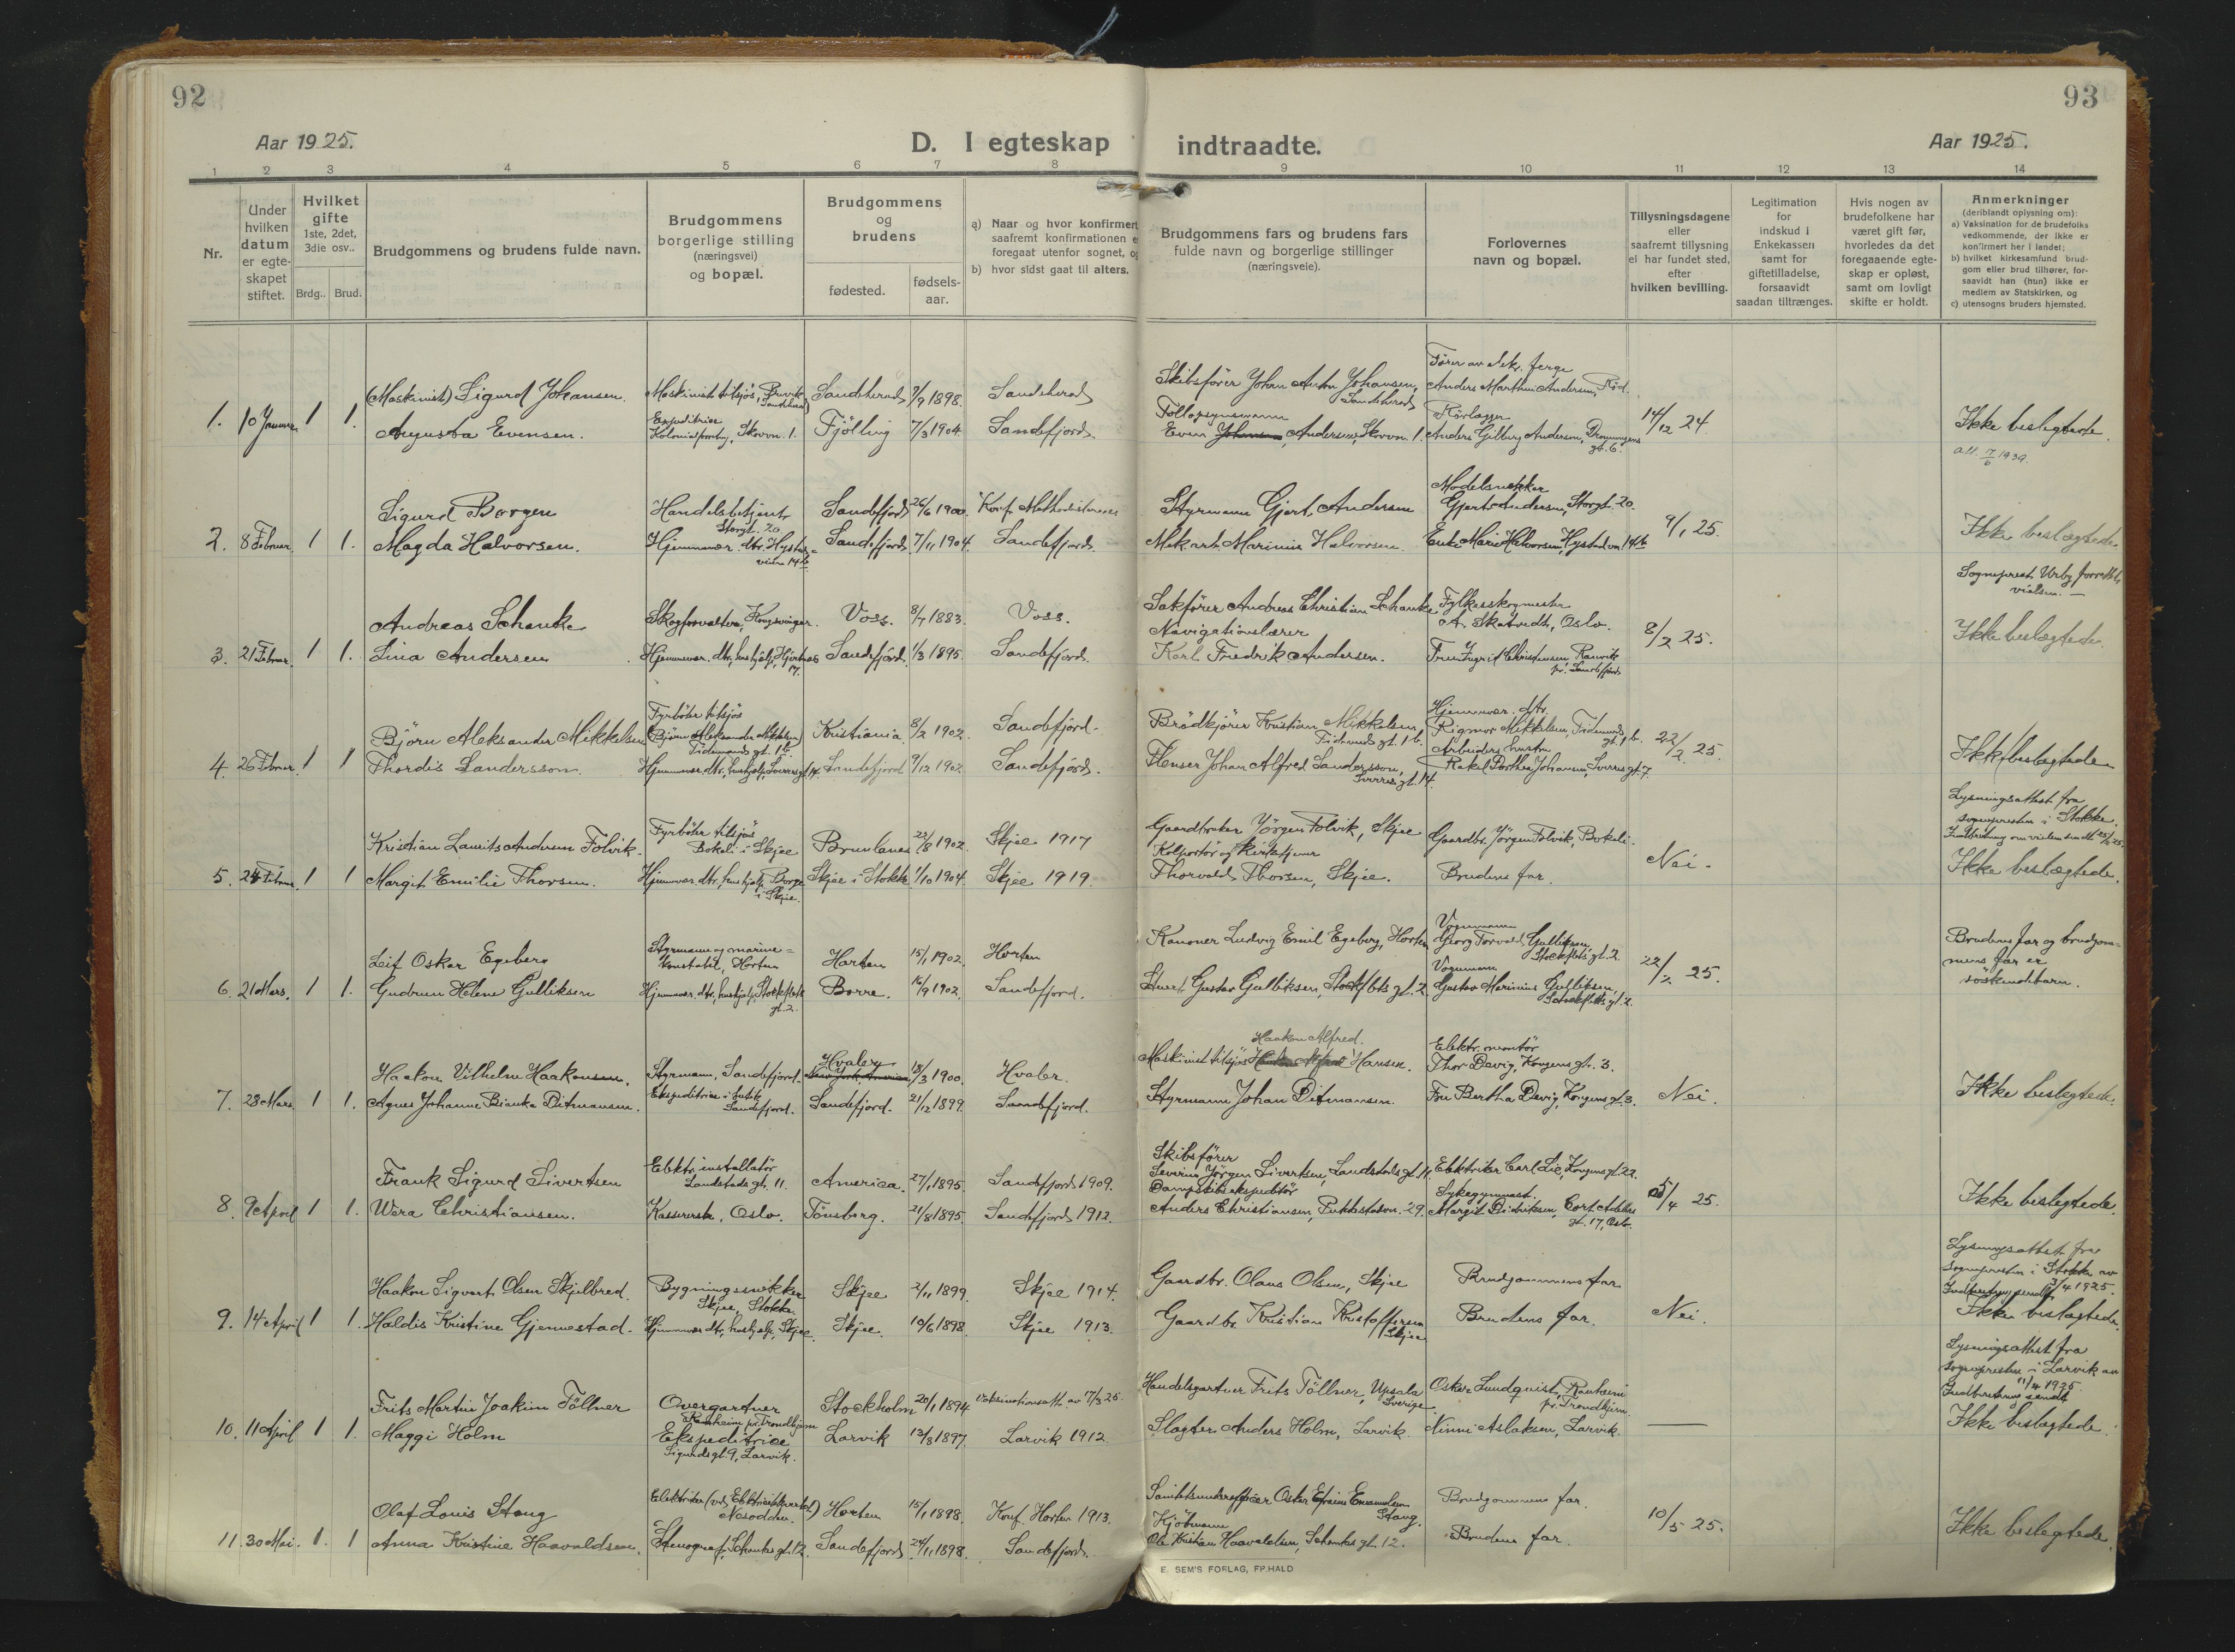 92
93
Aar 1925.
D. I egteskap indtraadte.
Aar 1925.
1 2 3 4 5 6 7 8 9 10 11 12 13 14
Nr.
Under hvilken datum er egte- skapet stiftet.
Hvilket gifte 1ste, 2det, 3die osv..
Brdg.. Brud.
Brudgommens og brudens fulde navn.
Brudgommens borgerlige stilling (næringsvei) og bopæl.
Brudgommens og brudens
fødested.
fødsels- aar.
a) Naar og hvor konfirmert
saafremt konfirmationen e
foregaat utenfor sognet, og
b) hvor sidst gaat til alters.
Brudgommens fars og brudens fars
fulde navn og borgerlige stillinger
(næringsveie).
Forlovernes
navn og bopæl.
Tillysningsdagene
eller
saafremt tillysning
ei har fundet sted,
efter
hvilken bevilling.
Legitimation
for
indskud i
Enkekassen
samt for
giftetilladelse,
forsaavidt
saadan tiltrænges.
Hvis nogen av
brudefolkene har
været gift før,
hvorledes da det
foregaaende egte-
skap er opløst,
samt om lovligt
skifte er holdt.
Anmerkninger
(deriblandt oplysning om):
a) Vaksination for de brudefolks
vedkommende, der ikke er
konfirmert her i landet;
b) hvilket kirkesamfund brud-
gom eller brud tilhører, for-
saavidt han (hun) ikke er
medlem av Statskirken, og
c) utensogns bruders hjemsted.
(Maskinist) Sigurd Johansen. Maskinist tilsjøs, Sandeherred 1898. Sandeherred
Skibsfører Johan Anton Johansen, Sandeherred
Fører av elektr. ferge
Anders Marthin Andersen,
1. 10 Januar 1 1. Augusta Evensen. Expeditrice Skovvn. 1. Fjölling 7/3 1904. Sandefjord.
Tollopsynsmann
Even Johansen, Andersen, Skovvn. 1.
Rörlægger
Anders Gilberg Andersen, Dronningens gt. 6.
14/12 24.
Ikke beslegtede.
Sigurd Borgen Handelsbetjent Storgt. 20 Sandefjord 26/6 1900. Konf. Methodistenes
Styrmann Gjert Andersen
Modelsnekker
Gjert Andersen, Storgt. 20.
2. 8 Februar 1 1. Magda Halvorsen. Hjemmevær. dtr. Hystadveien 14b Sandefjord 7/11 1904. Sandefjord.
Mek. arb. Marinius Halvorsen. Enke Marie Halvorsen, Hystadvn. 14b
9/1 25.
Ikke beslægtede
Sogneprest Urbye forrettet vielsen. —
Andreas Schanke Skogforvalter, Kongsvinger. Voss. 8/7 1883. Voss.
Sakfører Andreas Christian Schanke Fylkesskogmester
A. Skatvedt, Oslo.
3. 21 Februar. 1 1. Lina Andersen Hjemmevær. dtr., hushjelp, Hjertnes 17. Sandefjord. 1/3 1895. Sandefjord.
Navigationslærer
Karl Fredrik Andersen.
Fru Ingrid Christensen, Ranvik pr. Sandefjord
8/2 25.
Ikke beslægtede.
Björn Aleksander Mikkelsen Fyrböter tilsjøs (Björn Aleksander Mikkelsen) Tidemands gt. 1b. Kristiania. 8/2 1902. Sandefjord.
Brödkjörer Kristian Mikkelsen, Tidemands gt. 1b.
Hjemmevær. dtr.
Rigmor Mikkelsen, Tidemands gt. 1b.
4. 26 Februar. 1 1 Thordis Sandersson. Hjemmevær. dtr., hushjelp, Sverresgt. 14. Sandefjord 9/12 1902 Sandefjord.
Flenser Johan Alfred Sandersson, Sverresgt. 14.
Arbeiders hustru
Rakel Dorthea Johansen, Sverresgt. 7.
22/2 25.
Ikke beslegtede
Kristian Laurits Andersen Fölvik. Fyrböter tilsjøs Bökeli i Skjee Brunlanes 23/8 1902. Skjee 1917
Gaardbruker Jörgen Folvik, Skjee Gaardbr. Jörgen Folvik, Bokeli.
Lysningsattest fra
sognepresten i Stokke.
Indberetning om vielsen sendt
5. 24 Februar. 1 1 Margit Emilie Thorsen. Hjemmevær. dtr., hushjelp, Borge i Skjee. Skjee i Stokke 1/10 1904. Skjee 1919.
Kolportør og kirketjener
Thorvald Thorsen, Skjee. Brudens far.
Nei.
Ikke beslægtede.
Leif Oskar Egeberg Styrmann og marine= konstabel, Horten Horten 15/1 1902. Horten
Kanoner Ludvig Emil Egeberg, Horten
Vognmann
Georg Torvald Gulliksen, Stockflets gt. 2.
6. 21 Mars. 1 1. Gudrun Helene Gulliksen Hjemmevær. dtr., hushjelp, Stockflets gt. 2. Borre. 16/9 1902. Sandefjord.
Stuert Gustav Gulliksen, Stockflets gt. 2.
Vognmann
Gustav Marinius Gulliksen, Stockflets gt. 2.
22/2 25.
Brudens far og brudgom-
mens far er
söskendebarn.
Haakon Vilhelm Haakonsen. Styrmann, Sandefjord. Hvaler New York, Amerika 18/3 1900. Hvaler.
Haakon Alfred.
Maskinist tilsjøs Hansen.
Elektr. montör
Thor Devig, Kongens gt. 3.
7. 28 Mars. 1 1. Agnes Johanne Bianka Ditmansen. Ekspeditrise i butik Sandefjord. Sandefjord. 21/12 1899. Sandefjord.
Styrmann Johan Ditmansen. Fru Bertha Devig, Kongens gt. 3.
Nei.
Ikke beslegtede.
Frank Sigurd Sivertsen Elektr. installatör Landstads gt. 11. America. 27/1 1895. Sandefjord 1909.
Skibsfører
Severin Jörgen Sivertsen, Landstads gt. 11. Elektriker Carl Lie, Kongens gt. 22.
8. 9 April 1 1. Wera Christiansen. Kassererske, Oslo. Tönsberg. 21/8 1895. Sandefjord 1912.
Dampskibsekspeditör
Anders Christiansen, Pukkestadvn. 29.
Sykegymnast.
Margit Didriksen, Cort Adelers gt. 17, Oslo.
5/4 25.
Ikke beslegtede.
Haakon Sigvart Olsen Skjelbred. Bygningssnekker Skjee, Stokke Skjee 2/11 1899 Skjee 1914.
Gaardbr. Olaus Olsen, Skjee Brudgommens far
Lysningsattest fra
Sognepresten i Stokke av
Indberetning sendt 1925.
9. 14 April 1 1. Haldis Kristine Gjennestad. Hjemmevær. dtr., hushjelp, Skjee. Skjee. 10/6 1898. Skjee 1913.
Gaardbr. Kristian Kristoffersen Skjee
Brudens far.
Nei.
Ikke beslægtede.
Frits Martin Joakim Töllner Overgartner Ranheim pr. Trondhjem Stockholm 20/1 1894 Vaksinationsatt. av 17/3 25.
Handelsgartner Frits Töllner, Upsala Sverige
Oskar Lundquist, Ranheim pr. Trondhjem.
Lysningsattest fra
sognepresten i Larvik av
11/4 1925.
Indberetning sendt
10. 11 April 1 1. Maggi Holm Ekspeditrice Sigurdsgt. 9, Larvik. Larvik 13/8 1897. Larvik 1912.
Slagter Anders Holm, Larvik. Ninni Aslaksen, Larvik.
—
Ikke beslegtede.
Olaf Louis Stang Elektriker (ved Elektricitetsverket) Nesodden. Horten 15/1 1898. Konf. Horten 1913.
Sanitetsunderofficer Oskar Efraim Emanuelsen Stang.
Brudgommens far.
11. 30 Mai. 1. 1 Anna Kristine Haavaldsen. Stenograf, Schankes gt. 12. Sandefjord 24/11 1898. Sandefjord.
Kjöbmann
Ole Kristian Haavaldsen, Schankes gt. 12. Brudens far.
10/5 25.
Ikke beslegtede.
E. SEM'S FORLAG, FR.HALD